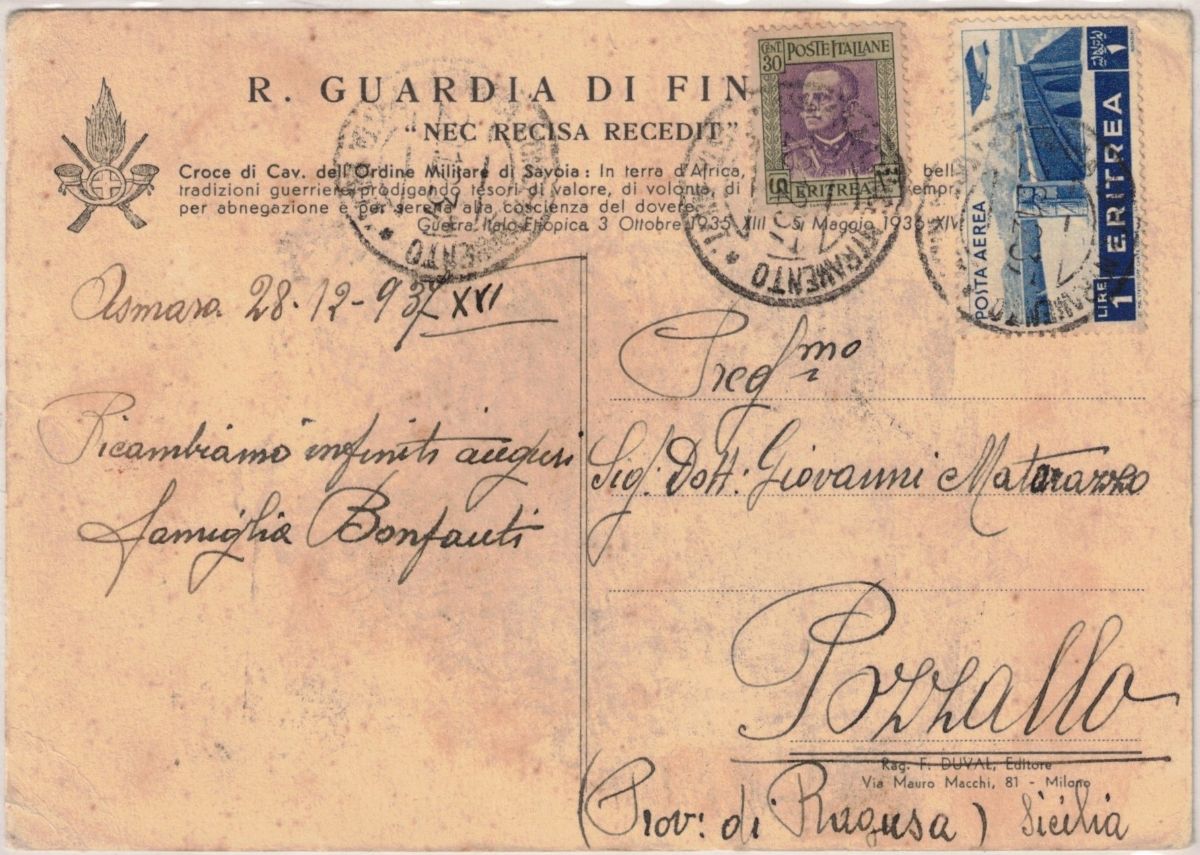 R. GUARDIA DI FIN
"NEC RECISA RECEDIT"
Croce di Cav. dell'Ordine Militare di Savoia: In terra d'Africa, bell
tradizioni guerriere prodigando tesori di valore, di volontà, di empr
per abnegazione e per serena alta coscienza del dovere.
Guerra Italo-Etiopica 3 Ottobre 1935 XIII - 5 Maggio 1936 XIV
CENT. 30
POSTE ITALIANE
ERITREA
POSTA AEREA
LIRE 1
ERITREA
Asmara 28-12-937 XVI
Ricambiamo infiniti auguri
famiglia Bonfanti
Preg.mo
Sig. Dott. Giovanni Matarazzo
Pozzallo
Rag. F. DUVAL, Editore
Via Mauro Macchi, 81 - Milano
(Prov: di Ragusa) Sicilia